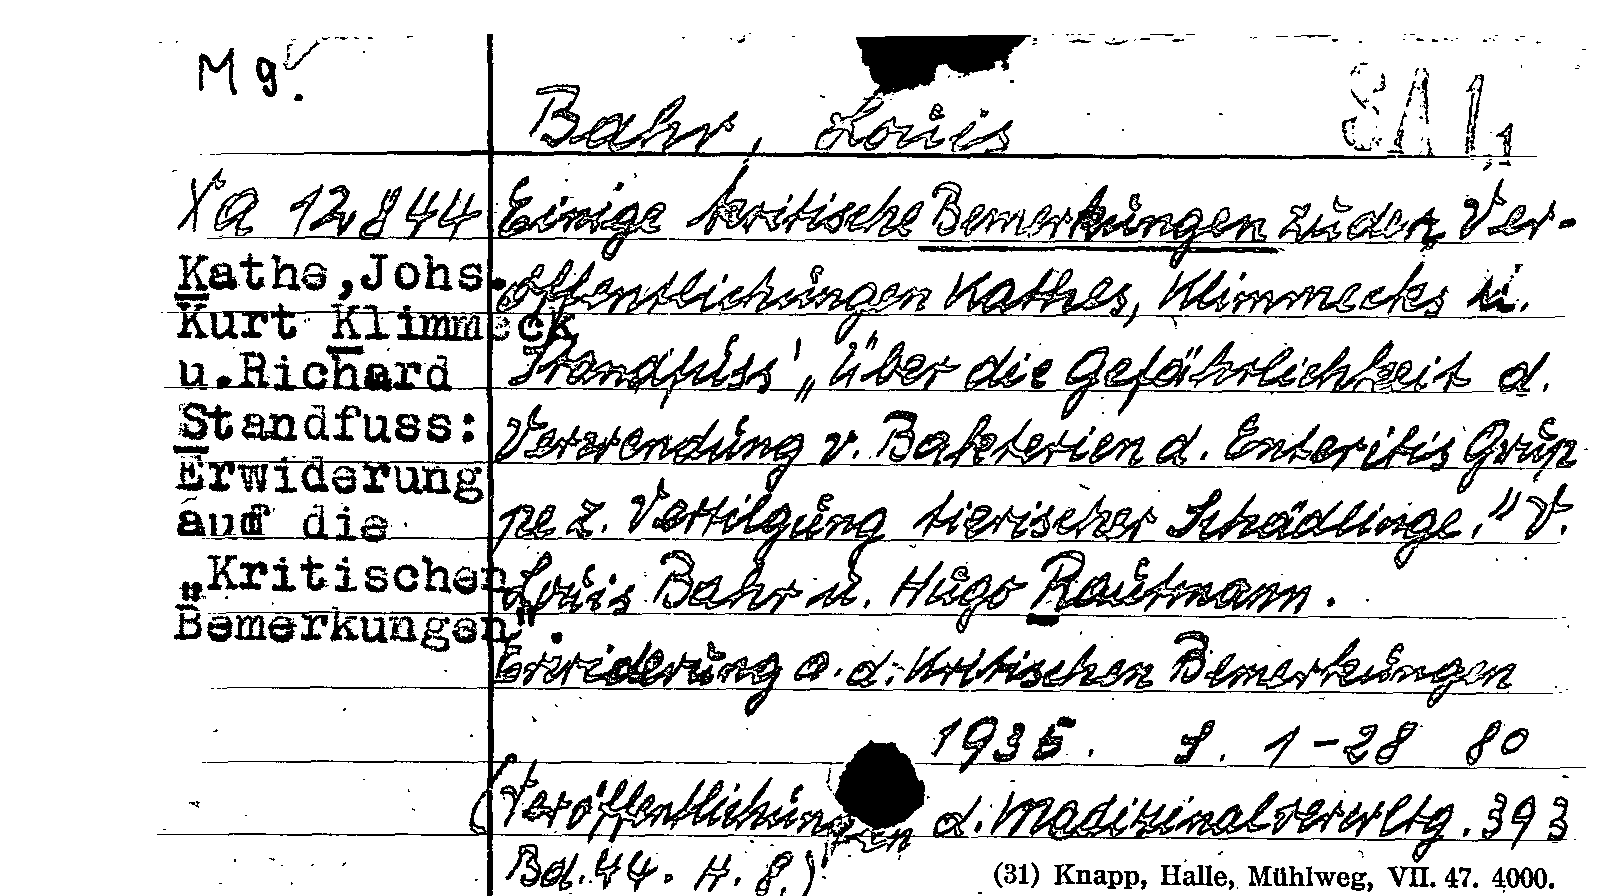 M 9.
SA 1,1
Bahr, Louis
Xa 12844
Kathe,Johs.
Kurt Klimmeck
u.Richard
Standfuss:
Erwiderung
auf die
„Kritischen
Bemerkungen".
Einige kritische Bemerkungen zu den Ver-
öffentlichungen Kathes, Klimmecks u.
Standfuss' „Über die Gefährlichkeit d.
Verwendung v. Bakterien d. Enteritis Grup
pe z. Vertilgung tierischer Schädlinge." V.
Louis Bahr u. Hugo Rautmann.
Erwiderung a. d. Kritischen Bemerkungen
1935. S. 1-28 80
(Veröffentlichungen d. Medizinalverwltg. 393
Bd. 44. H. 8.)
(31) Knapp, Halle, Mühlweg, VII. 47. 4000.